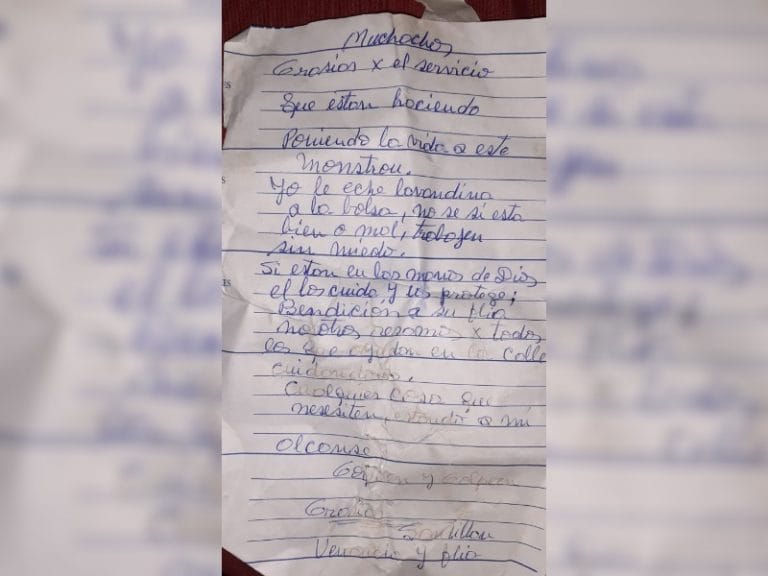 Muchachos
Grasias x el servicio
que estan haciendo
Poniendo la vida a este
monstrou.
Yo le eche lavandina
a la bolsa, no se si esta
bien o mal, trabajen
sin miedo.
Si estan en las manos de Dios
el los cuida y los protege;
Bendición a su flia
nosotros resamos x todos
los que ayudan en la calle
cuidandonos.
Cualquier cosa que
nesesiten, estaudré a mi
alcanse
y Golpeen
Grasias
Santillan
Venancio y flia